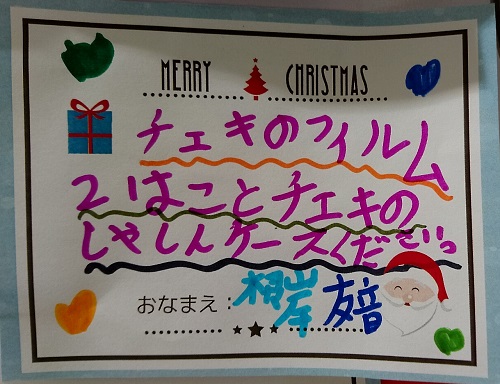 MERRY CHRISTMAS
チェキのフィルム
2はことチェキの
しゃしんケースくださいっ
おなまえ：相岸 友音